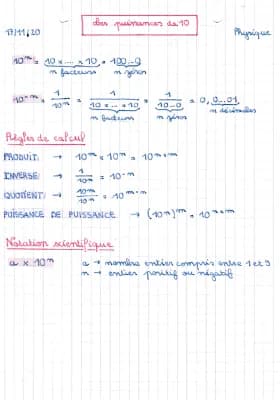 Les puissances de 10
17/11/20
Physique
10ⁿ = 10 x ... x 10 = 100...0
n facteurs n zéros
10⁻ⁿ = 1/10ⁿ = 1/(10 x ... x 10) = 1/(10...0) = 0,0...01
n facteurs n zéros n décimales
Règles de calcul
PRODUIT → 10ᵐ x 10ⁿ = 10ᵐ⁺ⁿ
INVERSE → 1/10ⁿ = 10⁻ⁿ
QUOTIENT → 10ᵐ/10ⁿ = 10ᵐ⁻ⁿ
PUISSANCE DE PUISSANCE → (10ⁿ)ᵐ = 10ⁿˣᵐ
Notation scientifique
a x 10ⁿ a → nombre entier compris entre 1 et 9
n → entier positif ou négatif